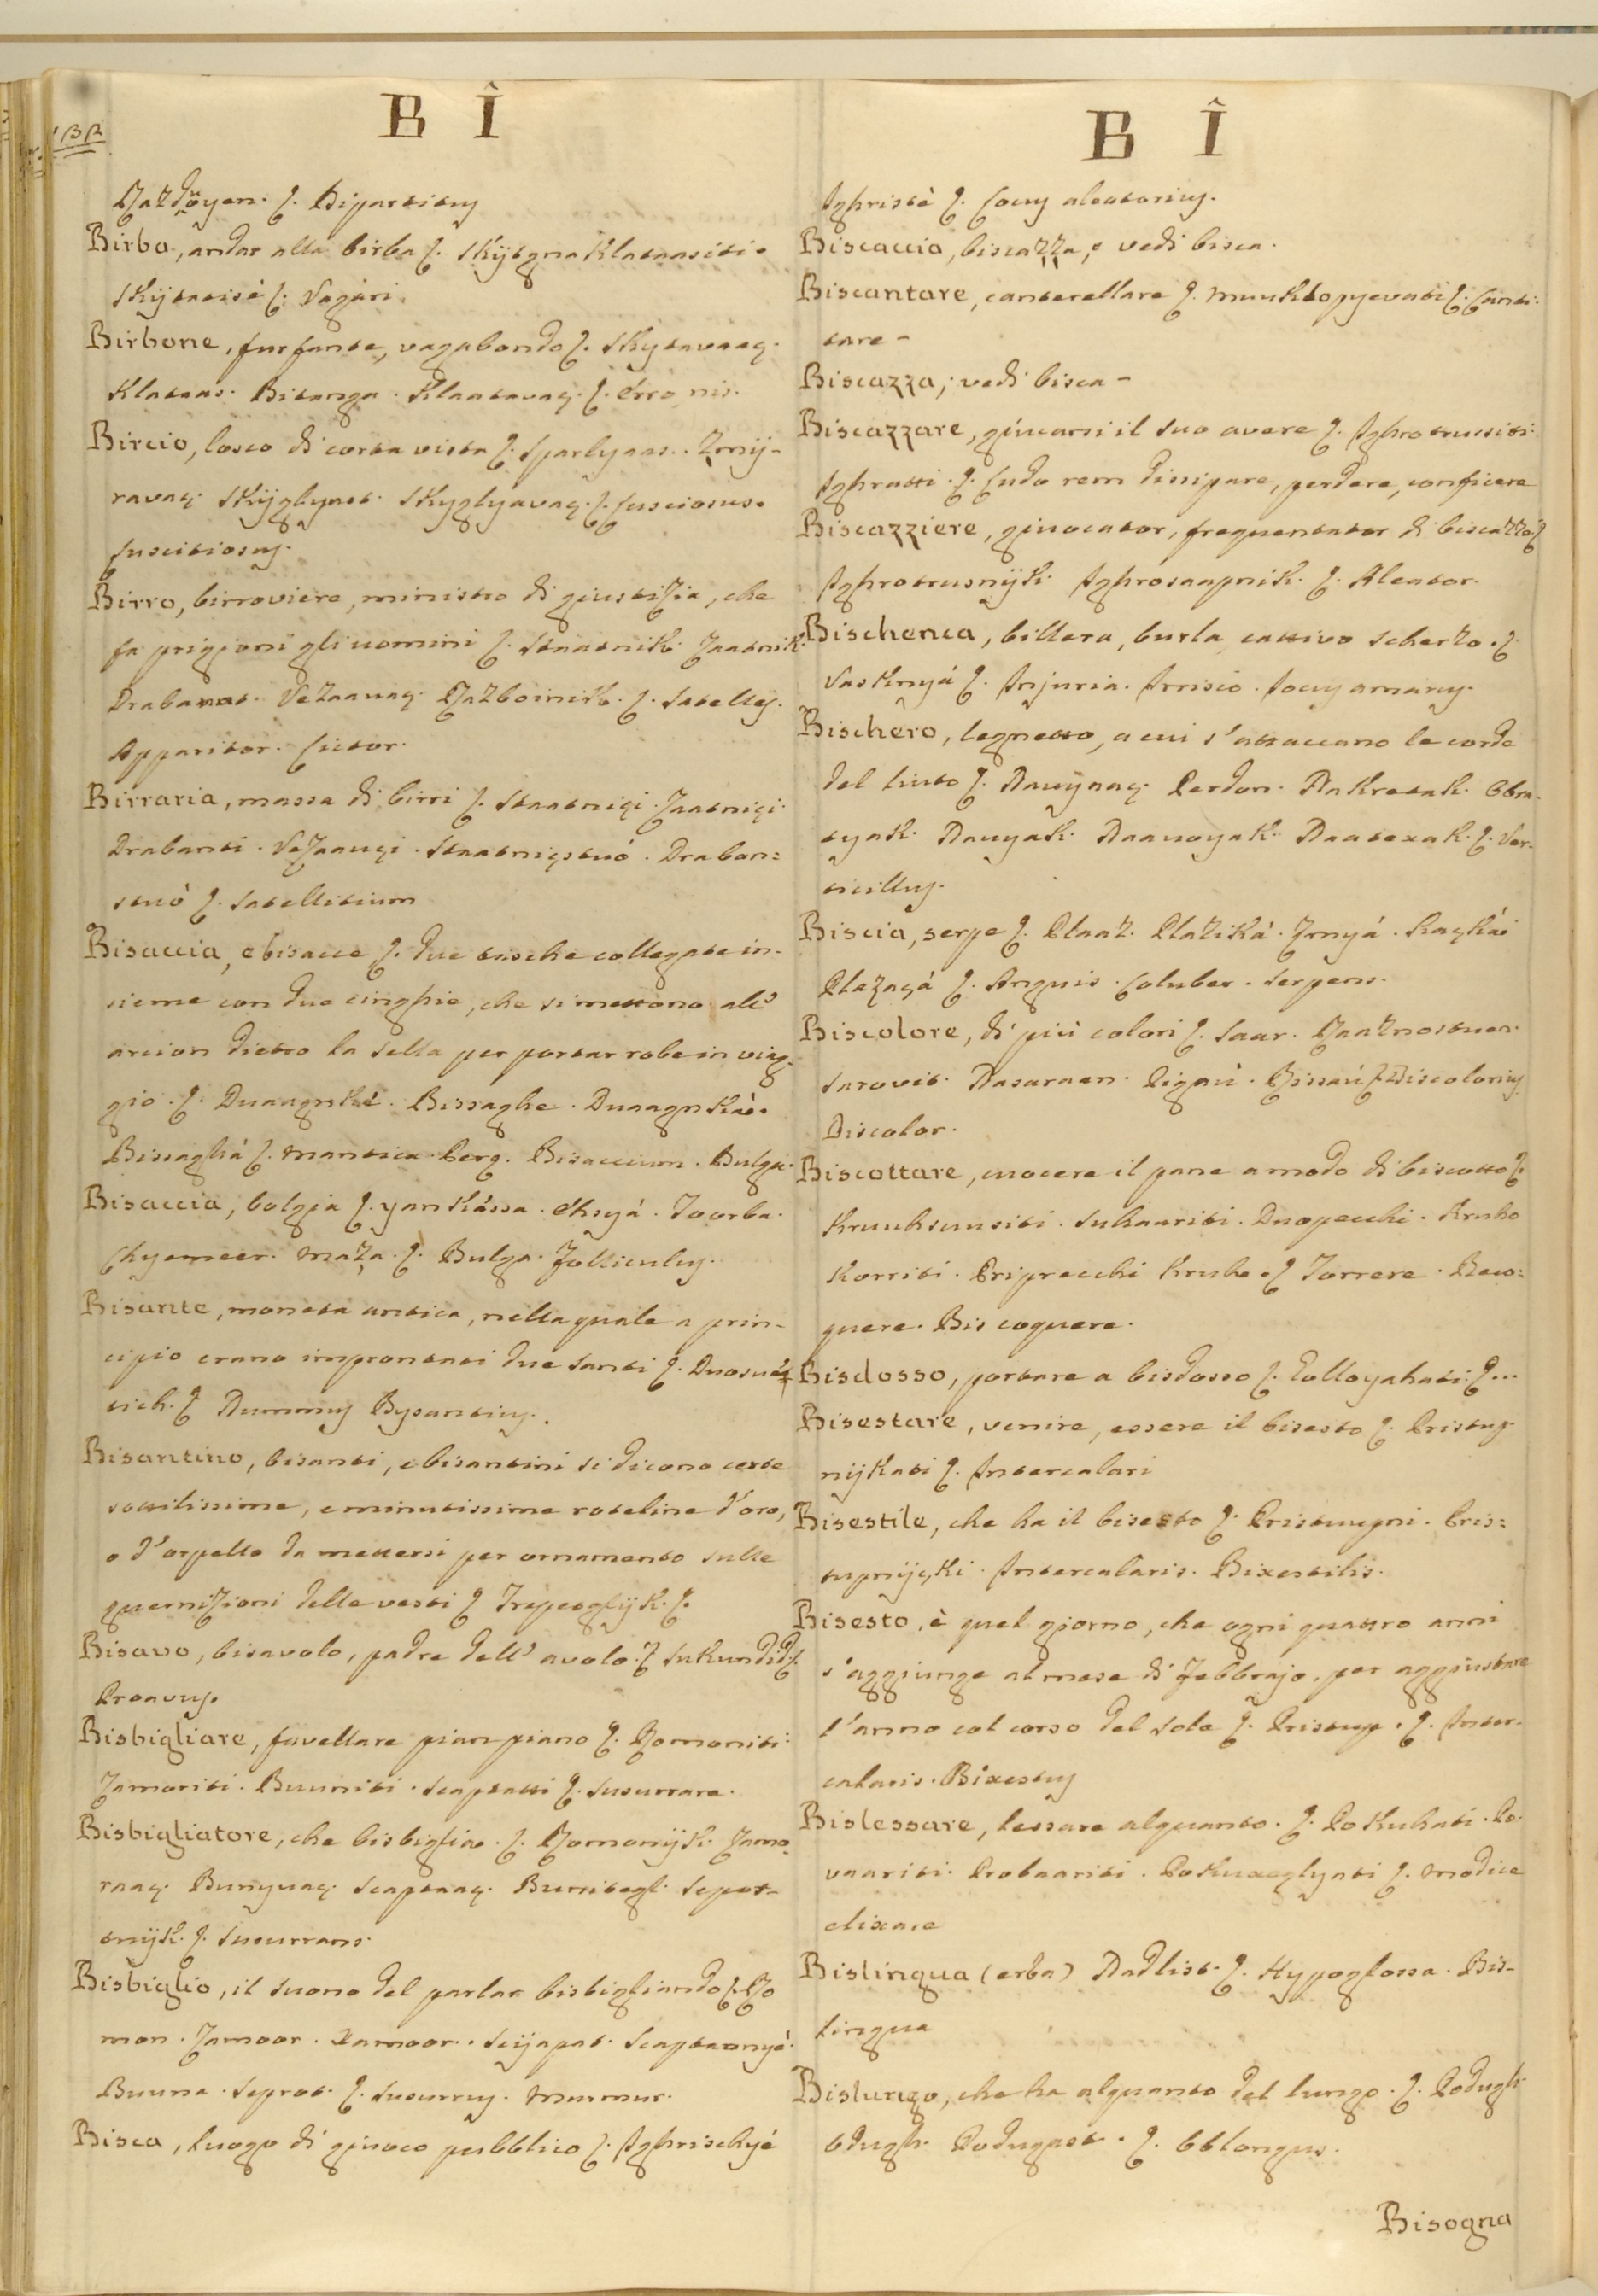 B Î
Razdvoyen. ſ. Bipartitus
Birba, andar alla birba ſ. Skijtgna Klataasiti.
Skijtatisè ſ. Vagari.
Birbone, furfante, vagabondo ſ. Skytavaaç.
Klataas. Bitanga. Klaatavaç. ſ. Erro nis.
Bircio, losco di corta vista ſ. Sparlyaas. Zmij-
ravaç. Skijglyast. Skyglyavaç. ſ. Lusciosus.
Luscitiosus.
Birro, birroviere, ministro di giustizia, che
fa prigioni gli uomini ſ. Staatnik. Jaatnik.
Drabaant. Vezaauaç. Razboinik. ſ. Satelles.
Apparitor. Lictor.
Birraria, massa di birri ſ. Staatniçi. Jaatniçi.
Drabanti. Vezaauçi. Staatniçstuó. Draban=
stuò ſ. Satellitium
Bisaccia, e bisacce ſ. due tasche collegate in-
sieme con due cinghie, che si mettono all'
arcion dietro la sella per portar robe in viag-
gio. ſ. Duaagnké. Bissaghe. Duaagnkáè.
Bissaghá ſ. Mantica. Perg. Bisaccium. Bulga.
Bisaccia, bolgia ſ. yankássa. Ehsyá. Toorba.
Chyemeer. Maza. ſ. Bulga. Folliculus.
Bisante, moneta antica, nella quale a prin-
cipio erano improntati due Santi ſ. Duosué
tich. ſ. Nummus Bysantius.
Bisantino, bisanti, e bisantini si dicono certe
sottilissime, e minutissime roteline d'oro,
o d'orpello da mettersi per ornamento sulle
guernizioni delle vesti ſ. Trepetglijk. ſ.
Bisavo, bisavolo, padre dell' avolo. ſ. Sukundid ſ.
Proavus.
Bisbigliare, favellare pian piano ſ. Romoniti.
Jamoriti. Buuniti. Scaptatti ſ. Susurrare.
Bisbigliatore, che bisbiglia. ſ. Romonijk. Jamo-
raaç. Bunyuaç. Scaptaaç. Bunitegl. Sepet-
tnijk. ſ. Susurrans.
Bisbiglio, il suono del parlar bisbigliando ſ. Ro
mon. Jamoor. Xamoor. Scijapat. Scaptaanyé.
Buuna. Seprot. ſ. Susurrus. Murmur.
Bisca, luogo di giuoco pubblico ſ. Ighrischyé
B Î
Ighristè ſ. Locus aleatorius.
Biscaccia, biscazza, vedi bisca.
Biscantare, canterellare ſ. Muuktopyevati ſ. Canti-
tare-
Biscazza, vedi bisca-
Biscazzare, giucarsi il suo avere ſ. Ighrotrusiti.
Ighratti. ſ. Ludo rem dissipare, perdere, conficere
Biscazziere, giuocator, frequentator di biscazze ſ.
Ighrotrusnijk. Ighrosaapnik. ſ. Aleator.
Bischenca, billera, burla cattivo scherzo. ſ.
Vaskrnyá ſ. Injuria. Irrisio. Jocus amarus.
Bischero, legnetto, a cui s'attaccano le corde
del liuto ſ. Nauijaaç. Perdon. Nakretak. Obra-
tyak. Nauyak. Naauoyak. Naatexak. ſ. Ver-
ticillus.
Biscia, serpe ſ. Plaaz. Plaziká. Jrnyá. Kaçkáò
Plazaçá ſ. Anguis. Coluber. Serpens.
Biscolore, di più colori ſ. Saar. Raaznostuer.
Sarovit. Nasaraan. Pigaú. Rissaú ſ. Discolorius
Discolor.
Biscottare, cuocere il pane a modo di biscotto ſ.
Kruuhsuusiti. Suhaariti. Duopecchi. Kruho
Korriti. Pripecchi Kruho. ſ. Torrere. Reco=
quere. Bis coquere.
Bisdosso, portare a bisdosso ſ. Golloyahati. ſ...
Bisestare, venire, essere il bisesto ſ. Pristup
nijkati ſ. Intercalari
Bisestile, che ha il bisesto ſ. Pristuupni. Pris=
tupnijçki. Intercalaris. Bixestilis.
Bisesto, è quel giorno, che ogni quattro anni
s'aggiunge al mese di Febbrajo, per aggiustare
l'anno col corso del sole ſ. Pristup. ſ. Inter-
calaris. Bixestus
Bislessare, lessare alquanto. ſ. Pokuhati. Po-
vaariti. Probaariti. Pokuxeglyati ſ. Modice
elixare
Bislingua (erba) Nadlist. ſ. Hypoglossa. Bis-
lingua
Bislungo, che ha alquanto del lungo. ſ. Podugh.
Odugh. Podugast. ſ. Oblongus.
Bisogna